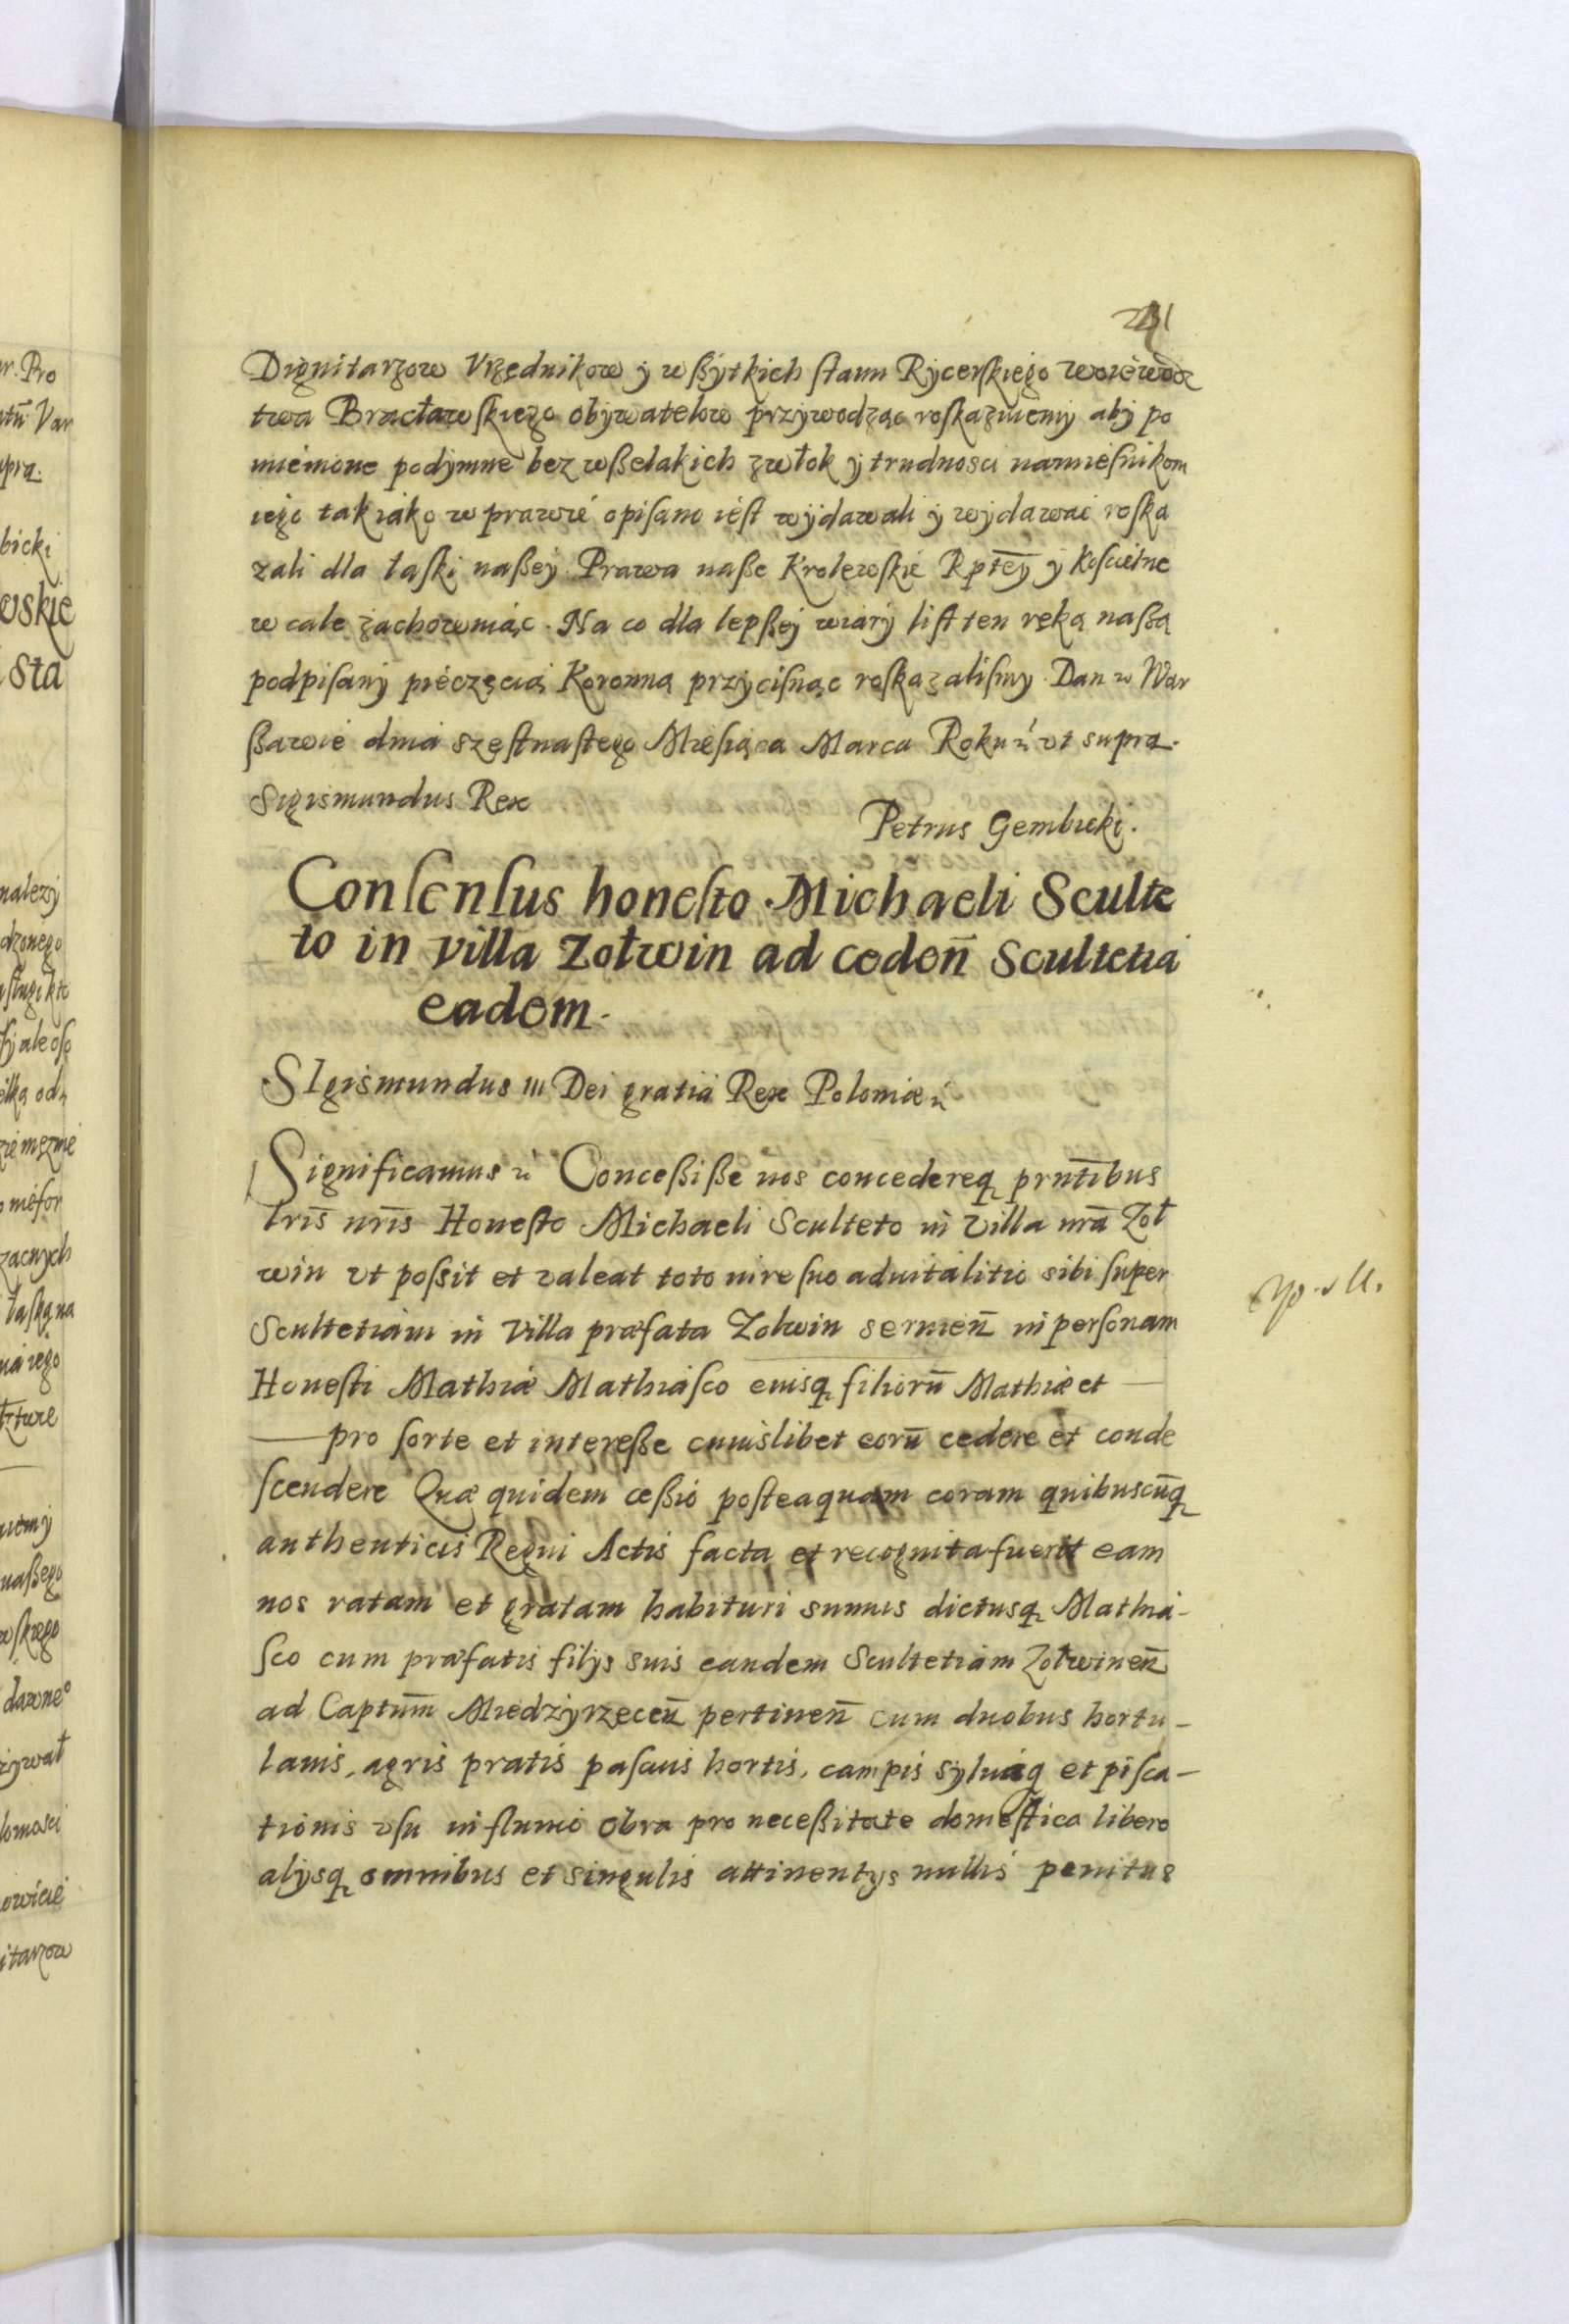 Dignitarzow Vrzędnikow y wßytkich ſtanu Rycerſkiego woiewodz
twa Bracławſkiego obywatelow przywodząc roſkazuiemy aby po
mienione podymne bez wßelakich zwłok y trudnosci namieſnikom
iego tak iako w prawie opiſano ieſt wydawali y wydawać roſka
zali dla łaſki naßey Prawa naße Krolewſkie Rptey y Koſcielne
w cale zachowuiąc. Na co dla lepßey wiary liſt ten ręką naßą
podpiſany pieczęcią Koronną przyciſnąc roſkazaliſmy. Dan w War
ßawie dnia szeſtnaſtego Mieſiąca Marca Roku ut supra.
Sigismundus Rex
Petrus Gembicki.
Conſenſus honeſto Michaeli Sculte
to in villa Zołwin ad ceden̄ Scultetia
eadem.
SIgismundus III Dei gratia Rex Poloniæ
Significamus Conceßiße nos concedereq prnt̄ibus
lrīs nrīs Honeſto Michaeli Sculteto in Villa nrā Zoł
win vt poßit et valeat toto iure ſuo aduitalitio sibi ſuper
Scultetiam in Villa præfata Zolwin seruien̄ in perſonam
Honeſti Mathiæ Mathiaſco eiusq filiorū Mathiæ et —
— pro ſorte et intereße cuiuslibet eorū cedere et conde
ſcendere Quæ quidem ceßio poſteaquam coram quibuscūq
authenticis Regni Actis facta et recognita fuerit eam
nos ratam et gratam habituri sumus dictusq Mathia-
ſco cum præfatis filijs suis eandem Scultetiam Zołwinen̄
ad Captūm Miedzyrzecen̄ pertinen̄ cum duobus hortu-
lanis, agris pratis paſcuis hortis, campis syluisq et piſca-
tionis vſu in flumio Obra pro neceßitate domeſtica libero
alijsq omnibus et singulis attinentijs nullis penitus